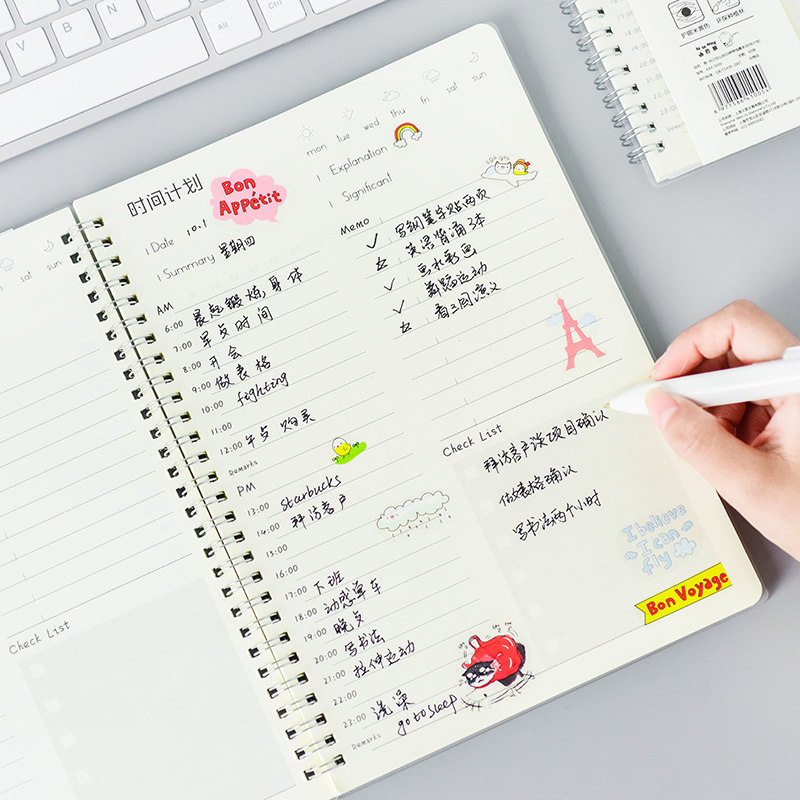 Alt
mon tue wed thu fri sat sun
时间计划
Bon
Appétit
Explanation
Significant
Date 10.1
Summary 星期四
Memo
写钢笔字贴两页
英语背诵3本
画水彩画
舞蹈运动
看三国演义
AM
6:00 晨起锻炼,身体
7:00 早点时间
8:00 开会
9:00 做表格
10:00 fighting
11:00
12:00 午点 购买
Remarks
PM
13:00 starbucks
14:00 拜访客户
15:00
16:00
17:00 下班
18:00 动感单车
19:00 晚点
20:00 写书法
21:00 拉伸运动
22:00
23:00 洗澡
go to sleep
Remarks
Check List
拜访客户谈项目确认
做表格确认
写书法两个小时
I believe
I can
fly
Bon Voyage
sat sun
Check List